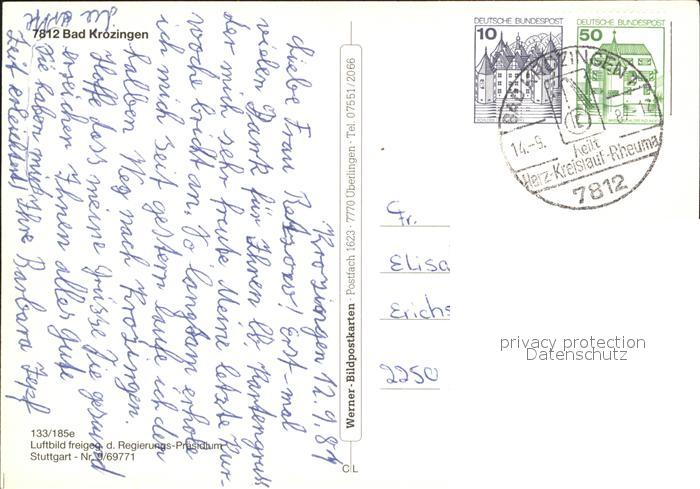 7812 Bad Krozingen
Krozingen 12.9.87
Liebe Frau Erst-mal
vielen Dank für Ihren lb. Kartengruss
der mich sehr freute. Meine letzte Kur-
woche bricht an. So langsam erhole
ich mich seit gestern laufe ich den
halben Weg nach Krozingen.
Hoffe dass meine Grüsse Sie gesund
erreichen Ihnen alles gute
Sie haben mir die
Zeit erleichtert Ihre Barbara Zepf
133/185e
Luftbild freigeg. d. Regierungs-Präsidium
Stuttgart - Nr. 9/69771
Werner-Bildpostkarten · Postfach 1623 · 7770 Überlingen · Tel. 07551/2066
C L
DEUTSCHE BUNDESPOST
10
DEUTSCHE BUNDESPOST
50
BAD KROZINGEN 1
14.-9. 87
heilt
Herz-Kreislauf-Rheuma
7812
Fr.
Elisa
Erichs
2250
privacy protection
Datenschutz